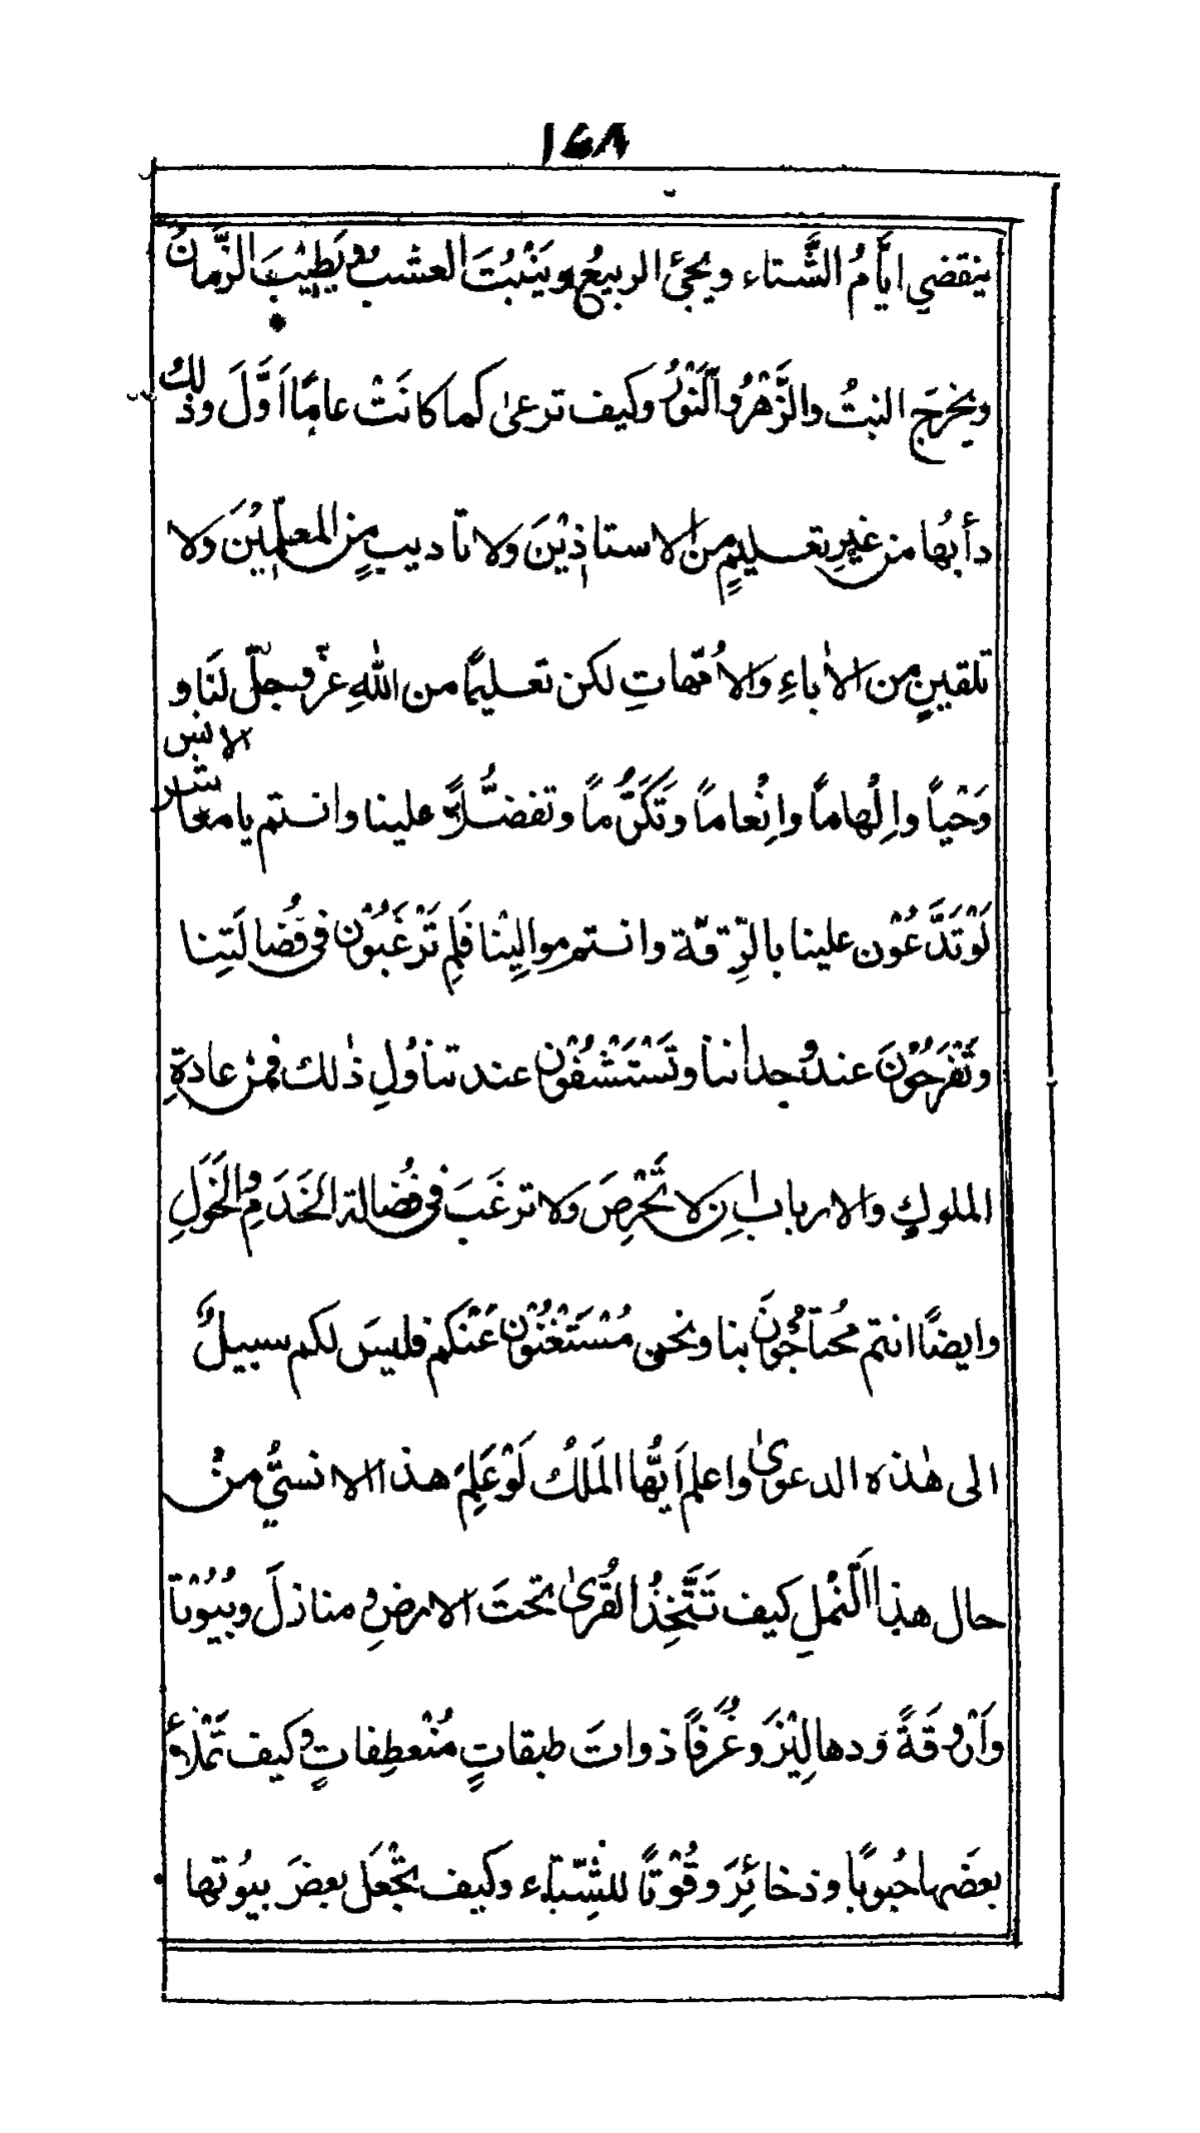 ١٤٨
ينقضي ايَّامُ الشَّتاء ويجئ الربيعُ ويَنْبُتَ العشب ويَطِيْبَ الزَّمانُ
ويخرجَ النبتُ والزَّهْرُ والَنَّوْرُ وكيف ترعىٰ كما كانَتْ عامًا اَوَّلَ وذٰلك
دأبُها من غيرِ تعليمٍ من الاستاذِيْنَ ولا تاديبٍ من المعلِّمِيْنَ ولا
تلقينٍ من الاٰباءِ والاُمّهاتِ لكن تعليمًا من اللّٰهِ عزّ وجلّ لنَا و
وَحْياً واِلْهاماً واِنْعاماً وَتَكَرُّماً وتفضُّلاً علينا وانتم يا معاشر الانس
لَوْ تَدَّعُوْن علينا بالرِّقّة وانتم موالِيْنا فَلِمِ تَرْغَبُوْن فى فُضالَتِنا
وتَفْرَحُوْنَ عند وُجداننا وتَسْتَشْفُوْن عند تناوُلِ ذٰلك فمن عادةِ
الملوكِ والارباب اِن لا تَحْرِصَ ولا ترغَبَ فى فُضالة الخَدَمِ والخَوَلِ
وايضًا انتم محُتاجُوْنَ بنا ونحن مُسْتَغْنُوْن عَنْكم فليسَ لكم سبيلٌ
الى هٰذه الدعوىٰ واعلم اَيُّها المَلكُ لَوْ عَلِمَ هذا الانسيُّ من
حال هذا النَّمْلِ كيف تَتَّخِذُ القُرىٰ تحتَ الارضِ ومنازلَ وبُيُوْتا
واَزْوِقَةً ودهالِيْزَ وغُرَفاً ذواتَ طبقاتٍ مُنْعطِفاتٍ وكيف تَمْلأُ
بعضَها حُبوبًا وذخائِرَ وقُوْتاً للشِّتاء وكيف تجْعَل بعضَ بيُوتها